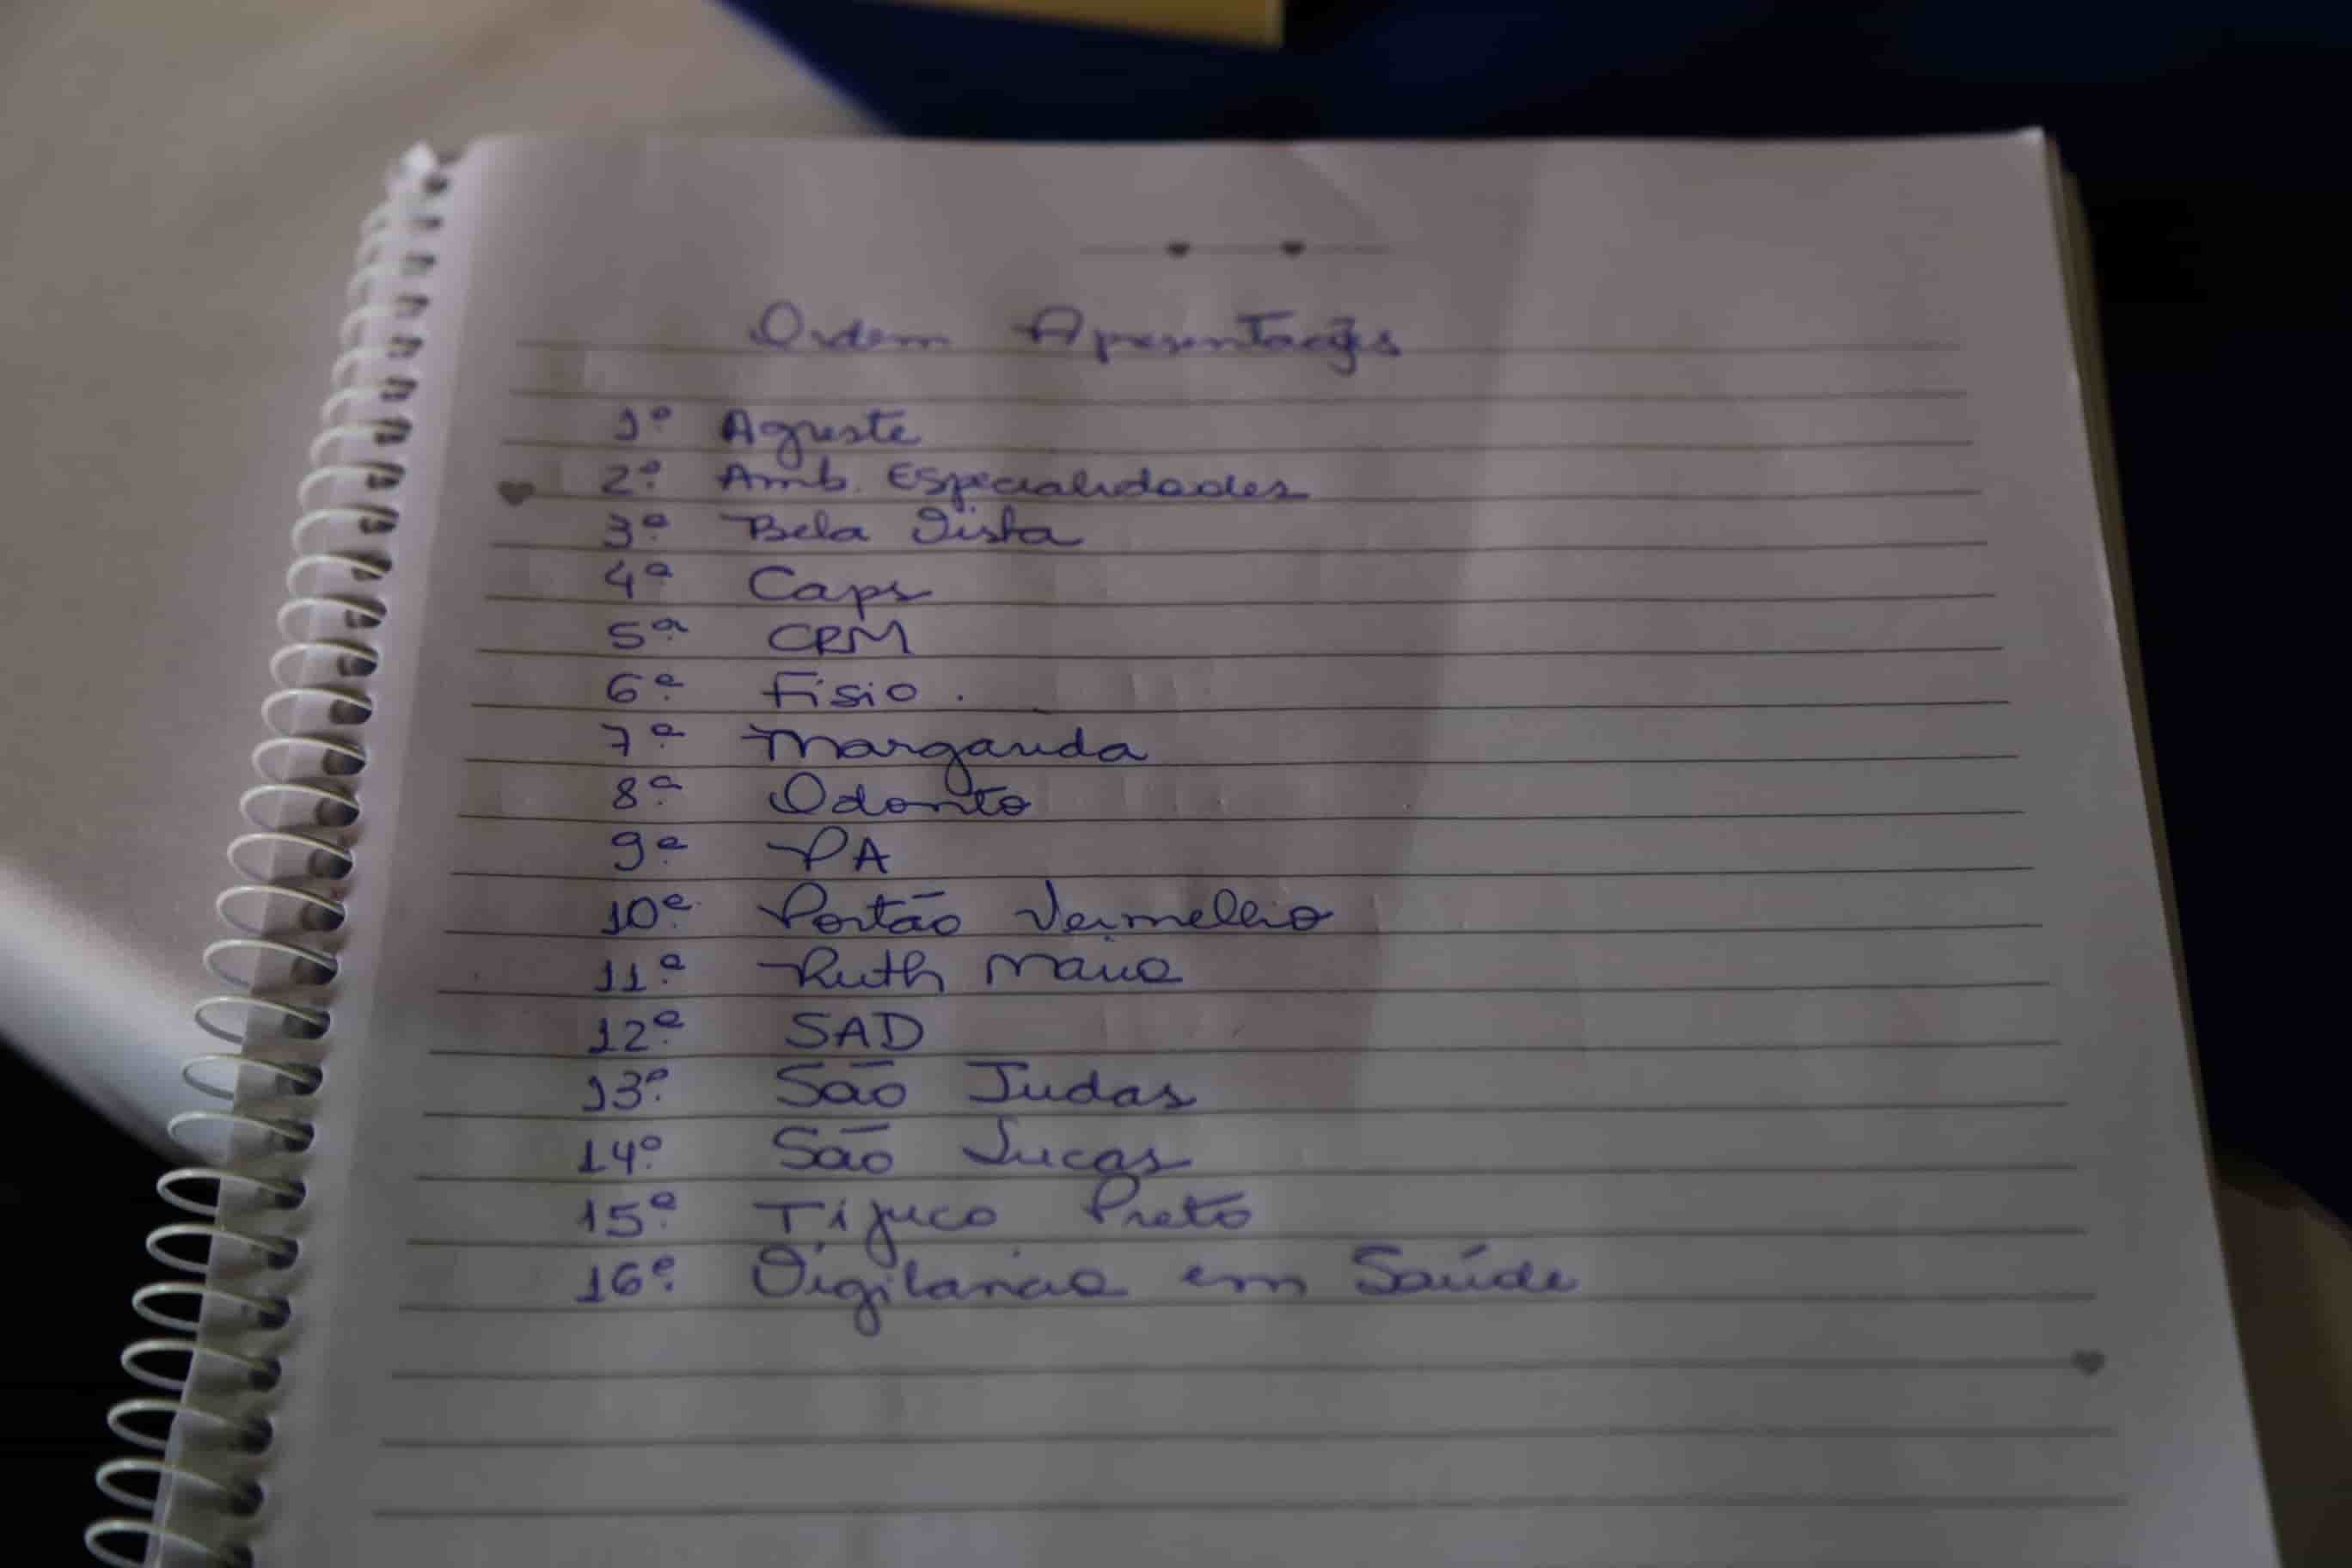 Ordem Apresentações
1º Agreste
2º Amb. Especialidades
3º Bela Vista
4º Caps
5ª CRM
6ª Fisio.
7ª Margarida
8ª Odonto
9ª PA
10ª Portão Vermelho
11ª Ruth Maria
12ª SAD
13º São Judas
14º São Lucas
15º Tijuco Preto
16º Vigilancia em Saúde